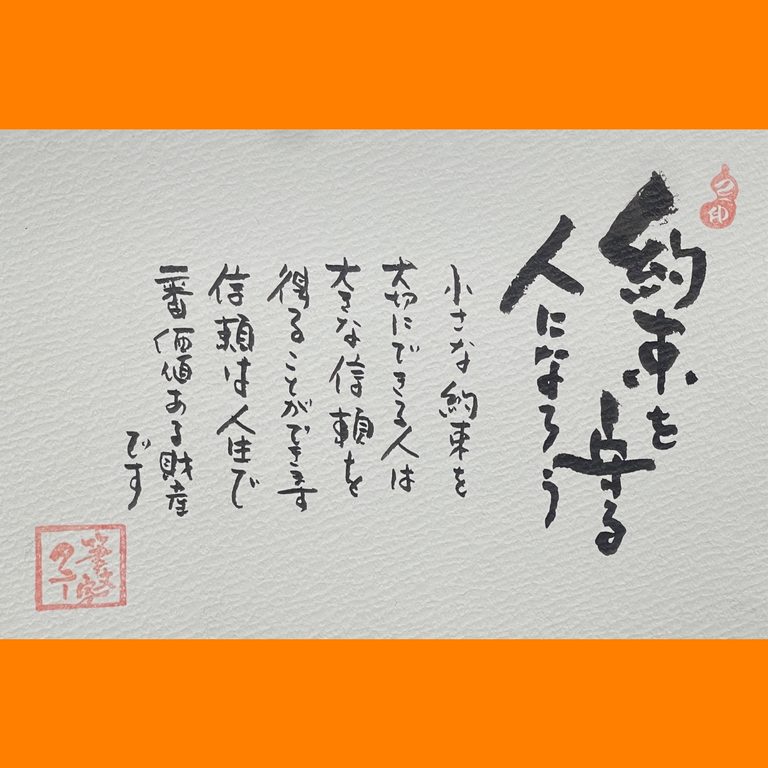 約束を守る
人になろう
小さな約束を
大切にできる人は
大きな信頼を
得ることができます
信頼は人生で
一番価値ある財産
です